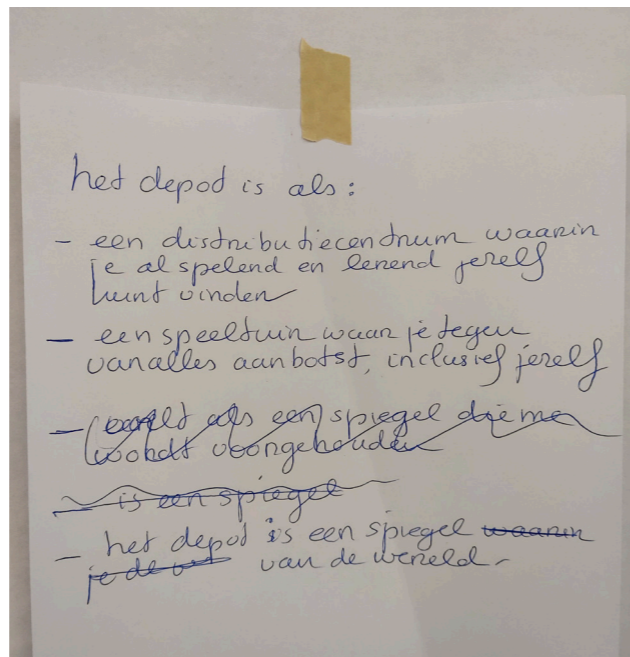 het depot is als:
- een distributiecentrum waarin
je al spelend en lerend jezelf
kunt vinden
- een speeltuin waar je tegen
vanalles aanbotst, inclusief jezelf
- voelt als een spiegel die me
wordt voorgehouden
- is een spiegel
- het depot is een spiegel waarin
je de van de wereld.